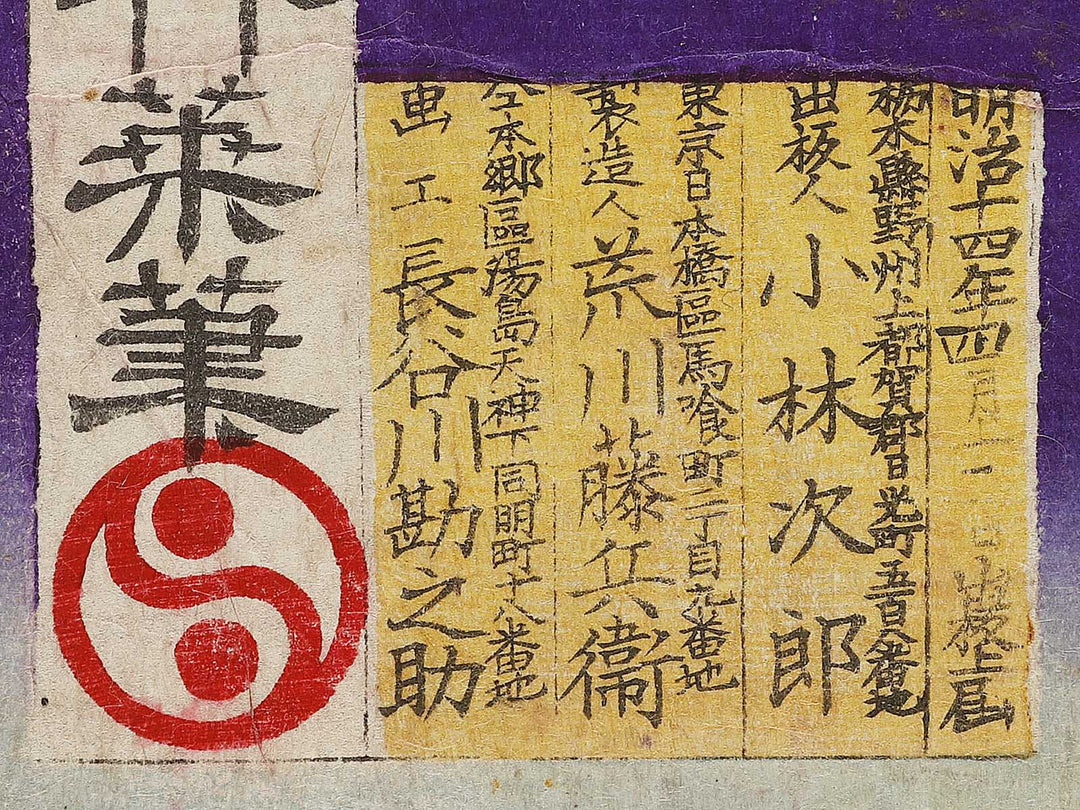 明治十四年四月二 日出板上届
栃木縣野州上都賀郡日光町五百八番地
出板人 小林次郎
東京日本橋區馬喰町二丁目九番地
製造人 荒川藤兵衞
仝本郷區湯島天神下同明町十八番地
画工 長谷川勘之助
竹葉筆